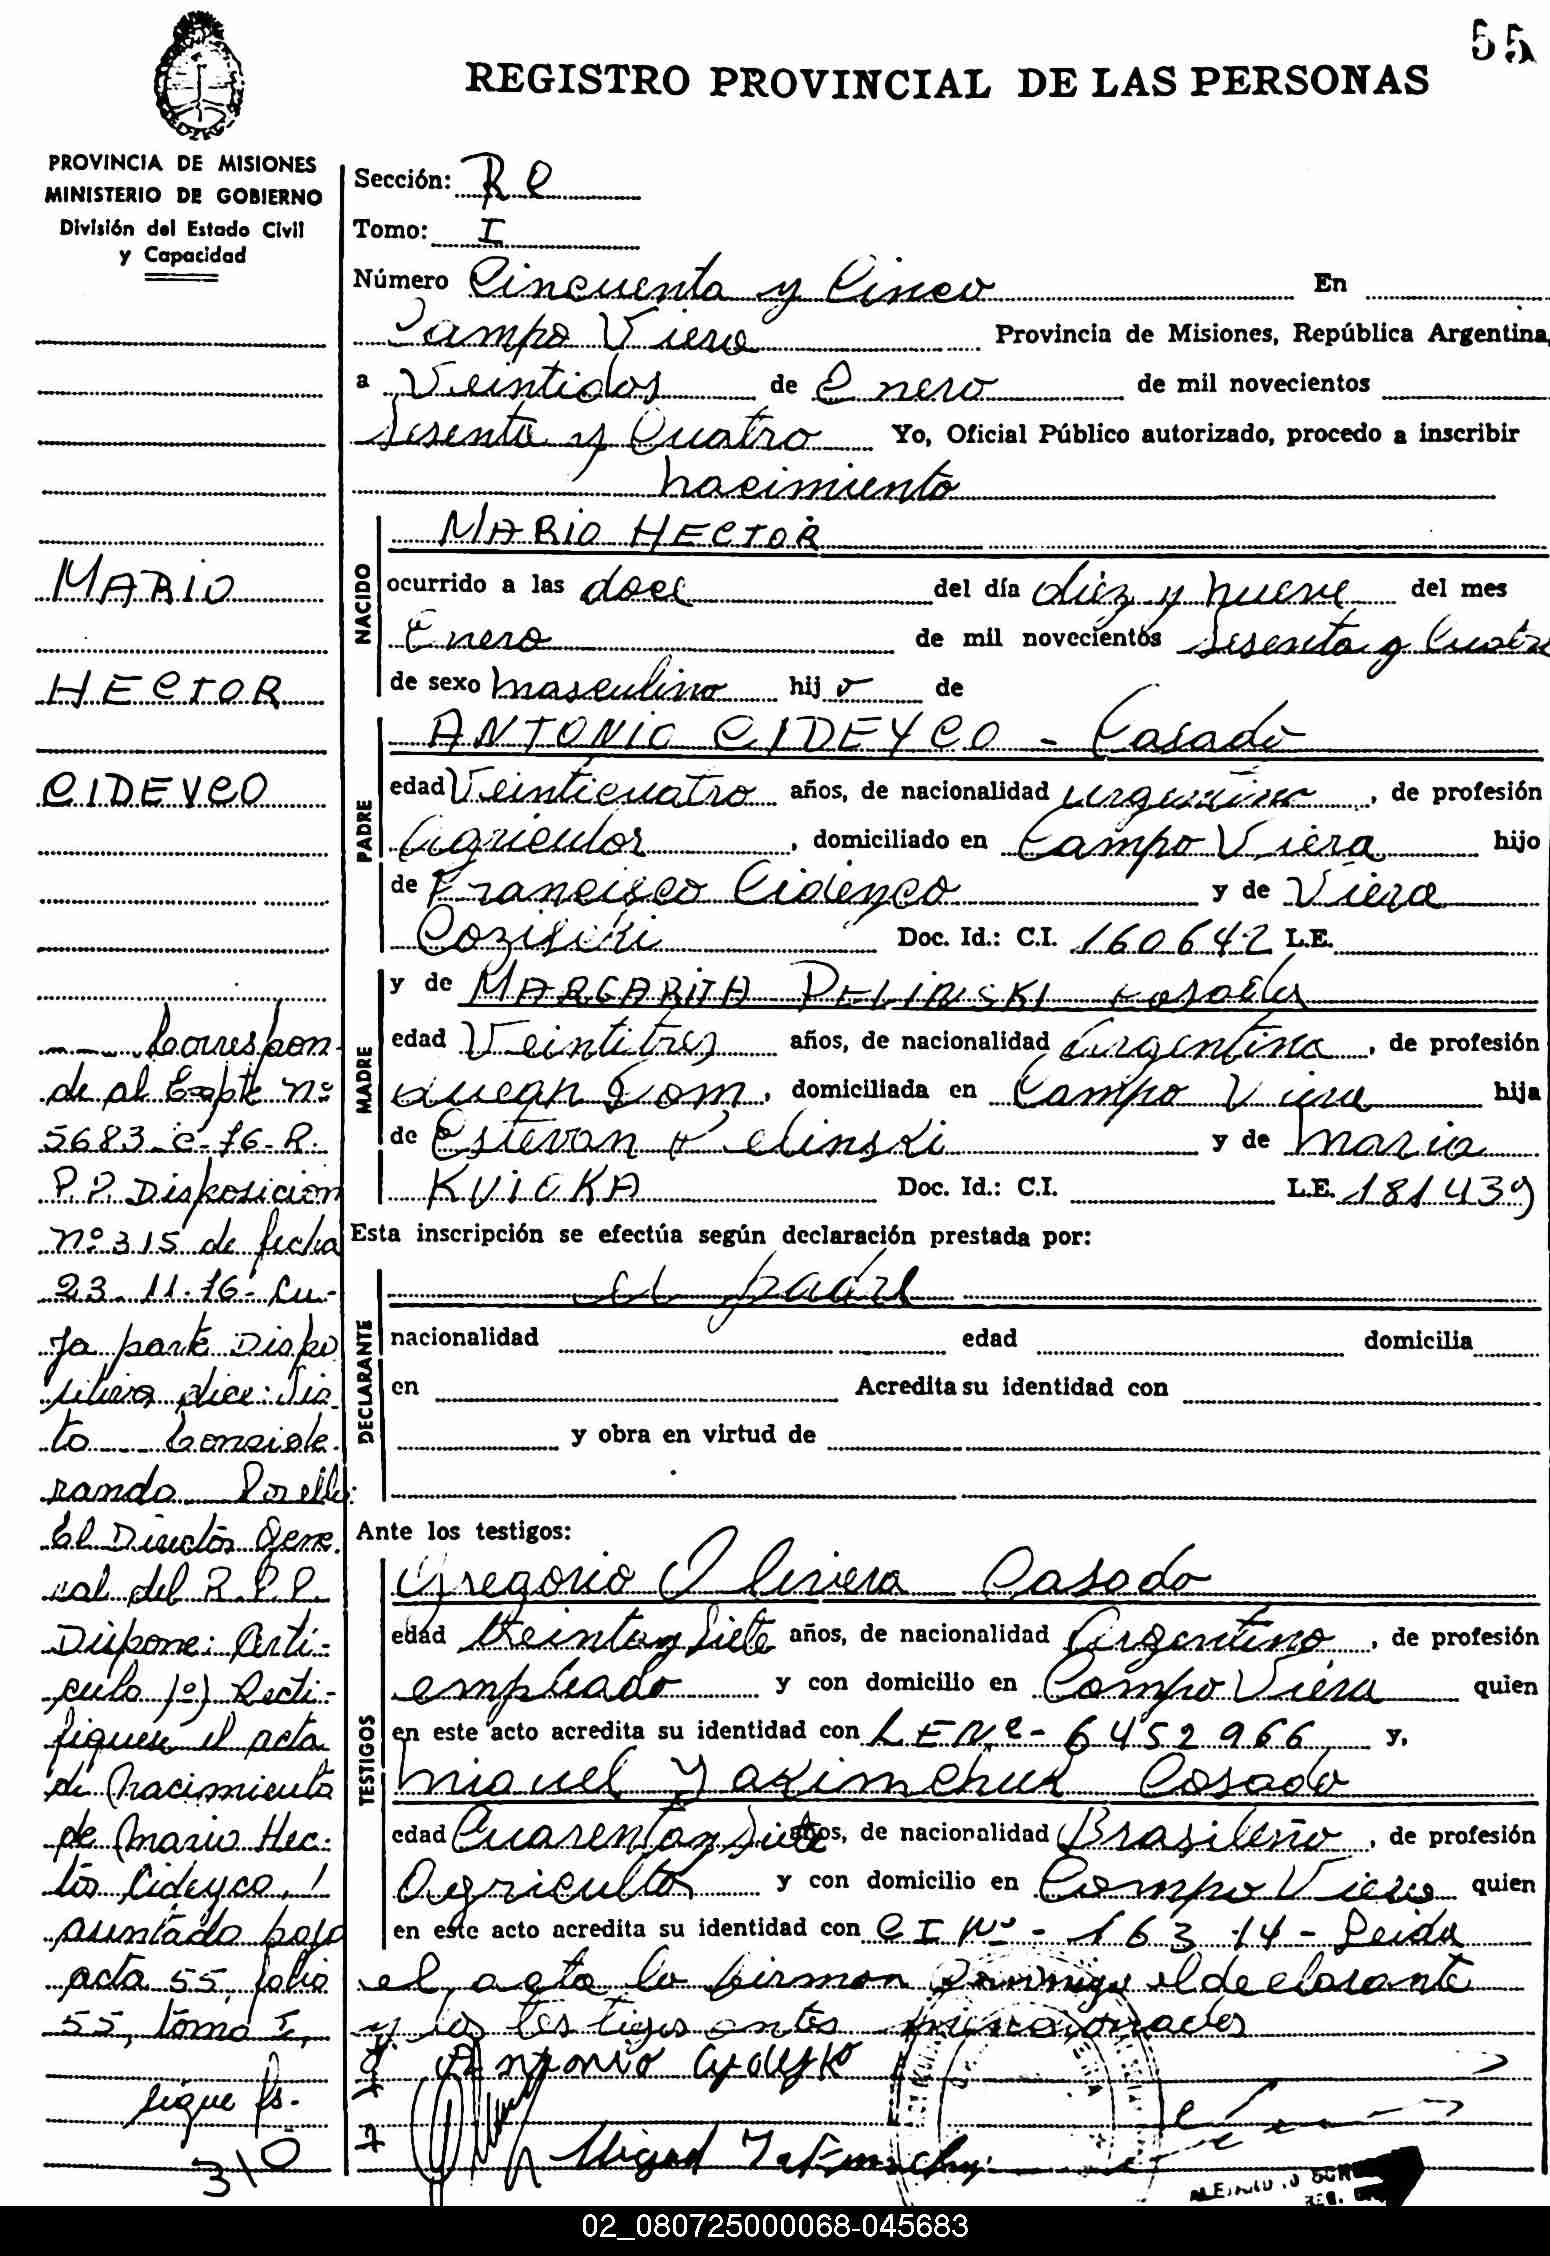 55
REGISTRO PROVINCIAL DE LAS PERSONAS
PROVINCIA DE MISIONES
MINISTERIO DE GOBIERNO
División del Estado Civil
y Capacidad
MARIO
HECTOR
CIDEYCO
Correspon-
de al Expte nº
5683-C-76-R.
P.P. Disposicion
nº 315 de fecha
23-11-76- Cu-
ya parte Dispo
sitiva dice: Vis-
to Conside-
rando Por ello:
El Director Gene-
ral del R.P.P.
Dispone: Arti-
culo 1º) Recti-
fiquese el acta
de Nacimiento
de Mario Hec-
tor Cideyco, 
asuntado bajo
acta 55, folio
55, tomo I,
sigue Fs.
310
Sección: RC
Tomo: I
Número Cincuenta y Cinco En
Campo Viera Provincia de Misiones, República Argentina,
a Veintidos de Enero de mil novecientos
Sesenta y Cuatro Yo, Oficial Público autorizado, procedo a inscribir
nacimiento
NACIDO
MARIO HECTOR
ocurrido a las doce del día diez y nueve del mes
Enero de mil novecientos Sesenta y Cuatro
de sexo masculino hijo de
PADRE
ANTONIO CIDEYCO - Casado
edad Veinticuatro años, de nacionalidad argentino, de profesión
Agricultor, domiciliado en Campo Viera hijo
de Francisco Cideyco y de Viera
Doc. Id.: C.I. 160642 L.E.
MADRE
y de MARGARITA PELINSKI casada
edad Veintitres años, de nacionalidad Argentina, de profesión
quean Dom, domiciliada en Campo Viera hija
de Estevan Pelinski y de Maria
KVICKA Doc. Id.: C.I. L.E. 181439
Esta inscripción se efectúa según declaración prestada por:
DECLARANTE
el padre
nacionalidad edad domicilia
en Acredita su identidad con
y obra en virtud de
Ante los testigos:
TESTIGOS
Gregorio Olivera Casado
edad treinta y Siete años, de nacionalidad Argentino, de profesión
empleado y con domicilio en Campo Viera quien
en este acto acredita su identidad con L E Nº- 6452966 y,
Miguel Yakimchuk Casado
edad Cuarenta y Siete años, de nacionalidad Brasileño, de profesión
Agricultor y con domicilio en Campo Viera quien
en este acto acredita su identidad con C I Nº - 163 14 - Leida
el acta la firman conmigo el declarante
y los testigos antes mencionados
Antonio
Miguel
02_080725000068-045683